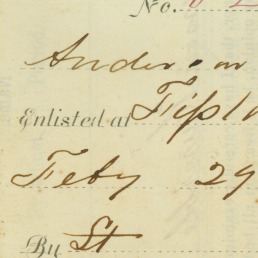 No.
Anderson
Enlisted at
Feby 29
By St